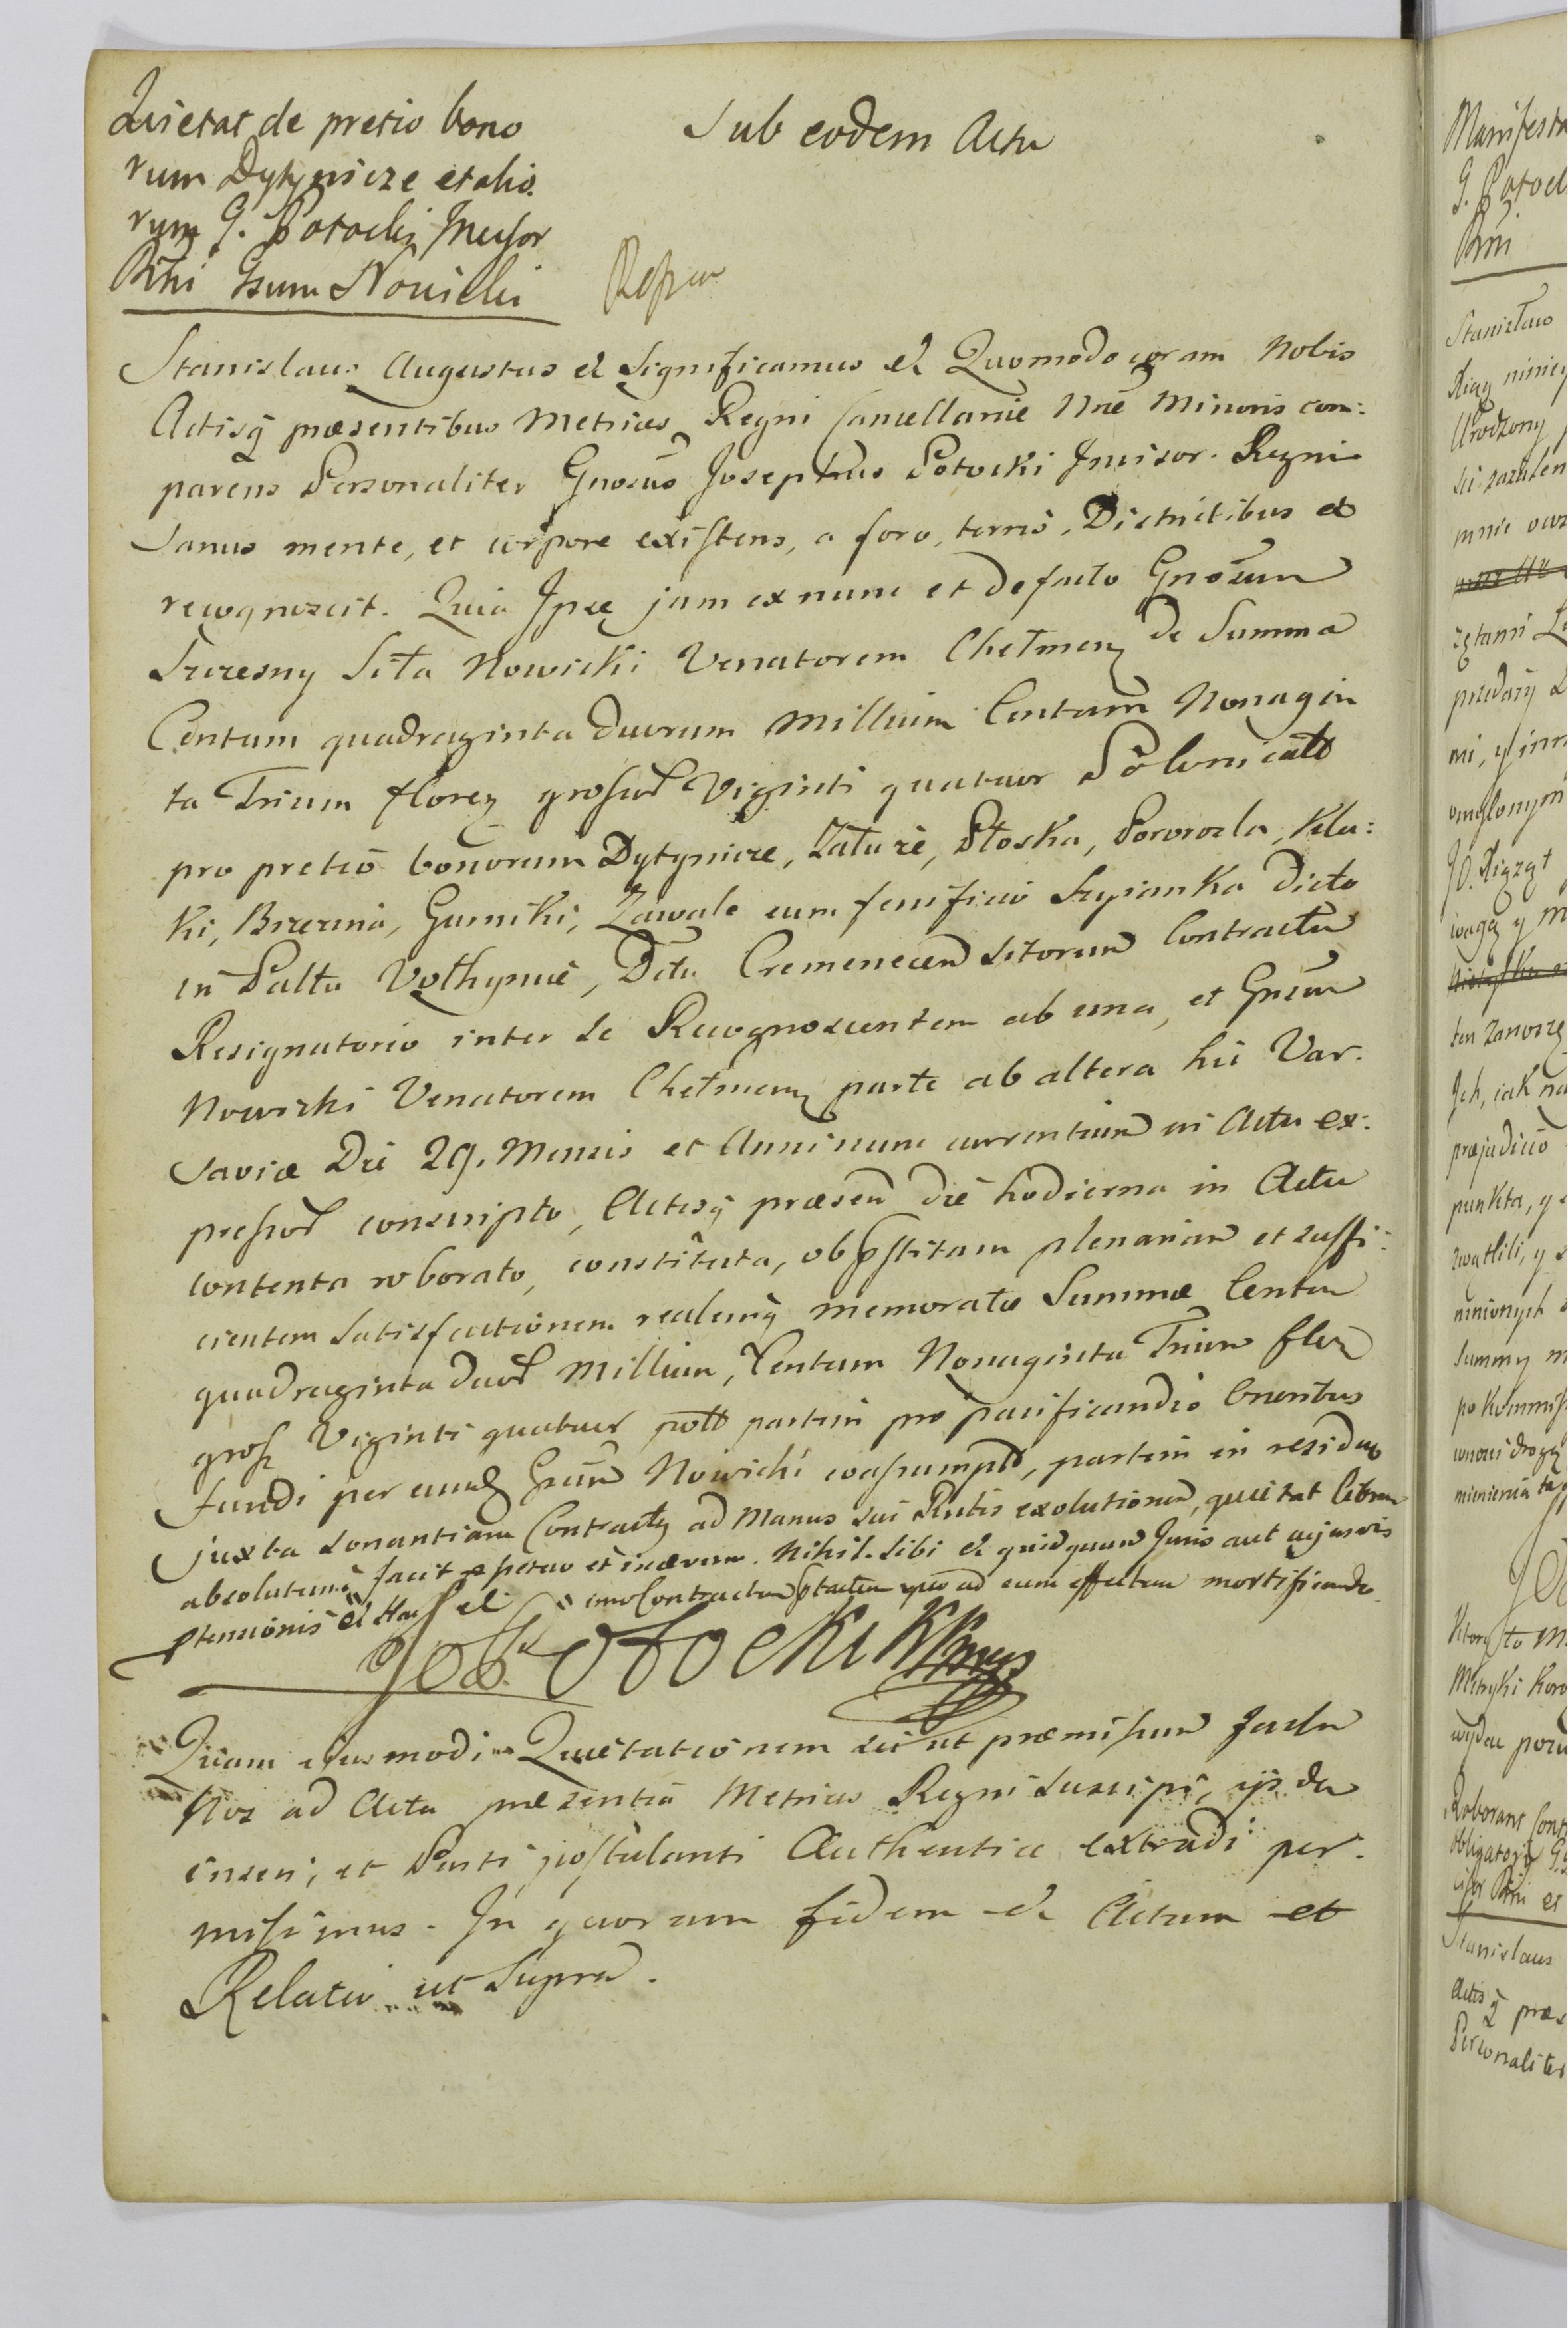 Quietat de pretio bono
rum Dytynicze et alio.
rum G. Potocki Incisor
Rni Gsum Nowicki
Sub eodem Actu
Stanislaus Augustus et Significamus et Quomodo coram Nobis
Actisq præsentibus Metrices Regni Cancellariæ Nræ Minoris com:
parens Personaliter Gnosus Josephus Potocki Incisor. Regni
Sanus mente, et corpore existens, a foro, terris, Districtibus et
recognoscit. Quia Ipse jam ex nunc et de facto Gnosum
Szczesny Siła Nowicki Venatorem Chełmen de Summa
Centum quadraginta duorum Millium Centum Nonagin
ta Trium floren grossor Viginti quatuor Polonicall
pro pretio bonorum Dytynicze, Zaturie, Płoska, Pororozla, Klu:
ki, Brzezina, Gurniki, Zawale cum Dicto
in Palltu Volhyniæ, Dctu Cremenecen sitorum Contractu
Resignatorio inter se Recognoscentem ab una, et Gnsum
Nowicki Venatorem Chełmen parte ab altera hic Var.
saviæ Die 29. Mensis et Anni nunc currentium in Actu ex:
pressor conscripto, Actisq præsen die hodierna in Actu
contento roborato, constituta, ob pstitam plenariam et suffi:
cientem Satisfactionem realemq memoratæ Summæ Centum
quadraginta duor Millium, Centum Nonaginta Trium flor
gross Viginti quatuor poll partim pro pacificandis Oneribus
fundi per eund Gnsum Nowicki coassumptis, partim in residuo
juxta sonantiam Contractus ad Manus sui Rntis exolutionem, quietat librum
absolutumq facit ppetuo et in ævum. Nihil. Sibi et quidquam Juris aut cujusvis
ptensionis et Has et imo Contractum quo ad eum effectum mortificando
Jos. Potocki KKrny
Quam eiusmodi Quietationem sic ut præmissum factum
Nos ad Acta præsentia Metrices Regni suscipi, ijsdem
inseri, et Parti postulanti Authentice extradi per.
misimus. In quorum fidem et Actum et
Relatio ut Supra.
Manifesta
G. Potock
Rni
Stanisław
Xiąg niniey
Urodzony
mnie
zętami
przedaży
mi, y inn
JO. Xiążąt
wagę y
ten
Ich, iak na
præjudicio
punkta, y
Summy
po kommiss
Metryki Koro
Roborant Cont
Obligatorij
Stanislaus
Actis q præs
Personaliter